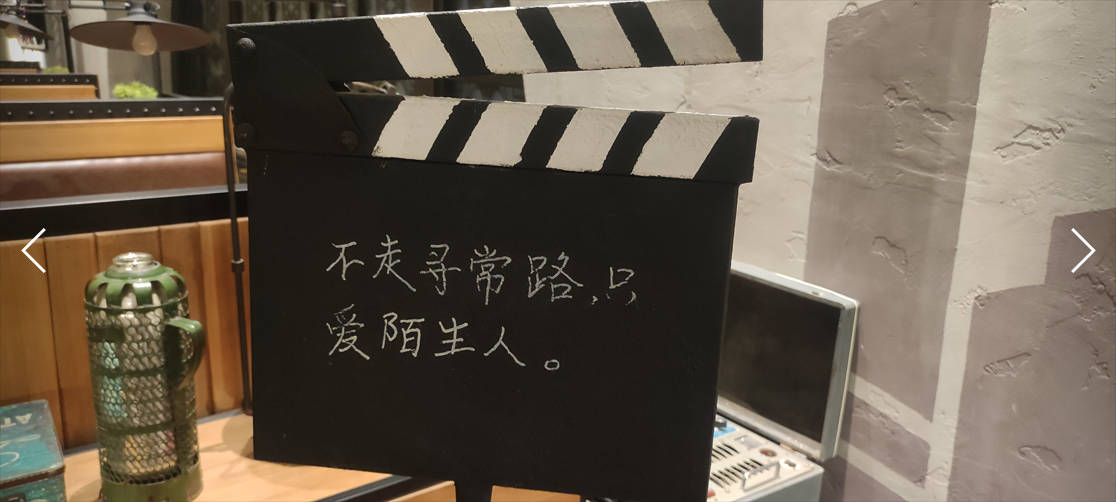 不走寻常路,只
爱陌生人。
AT